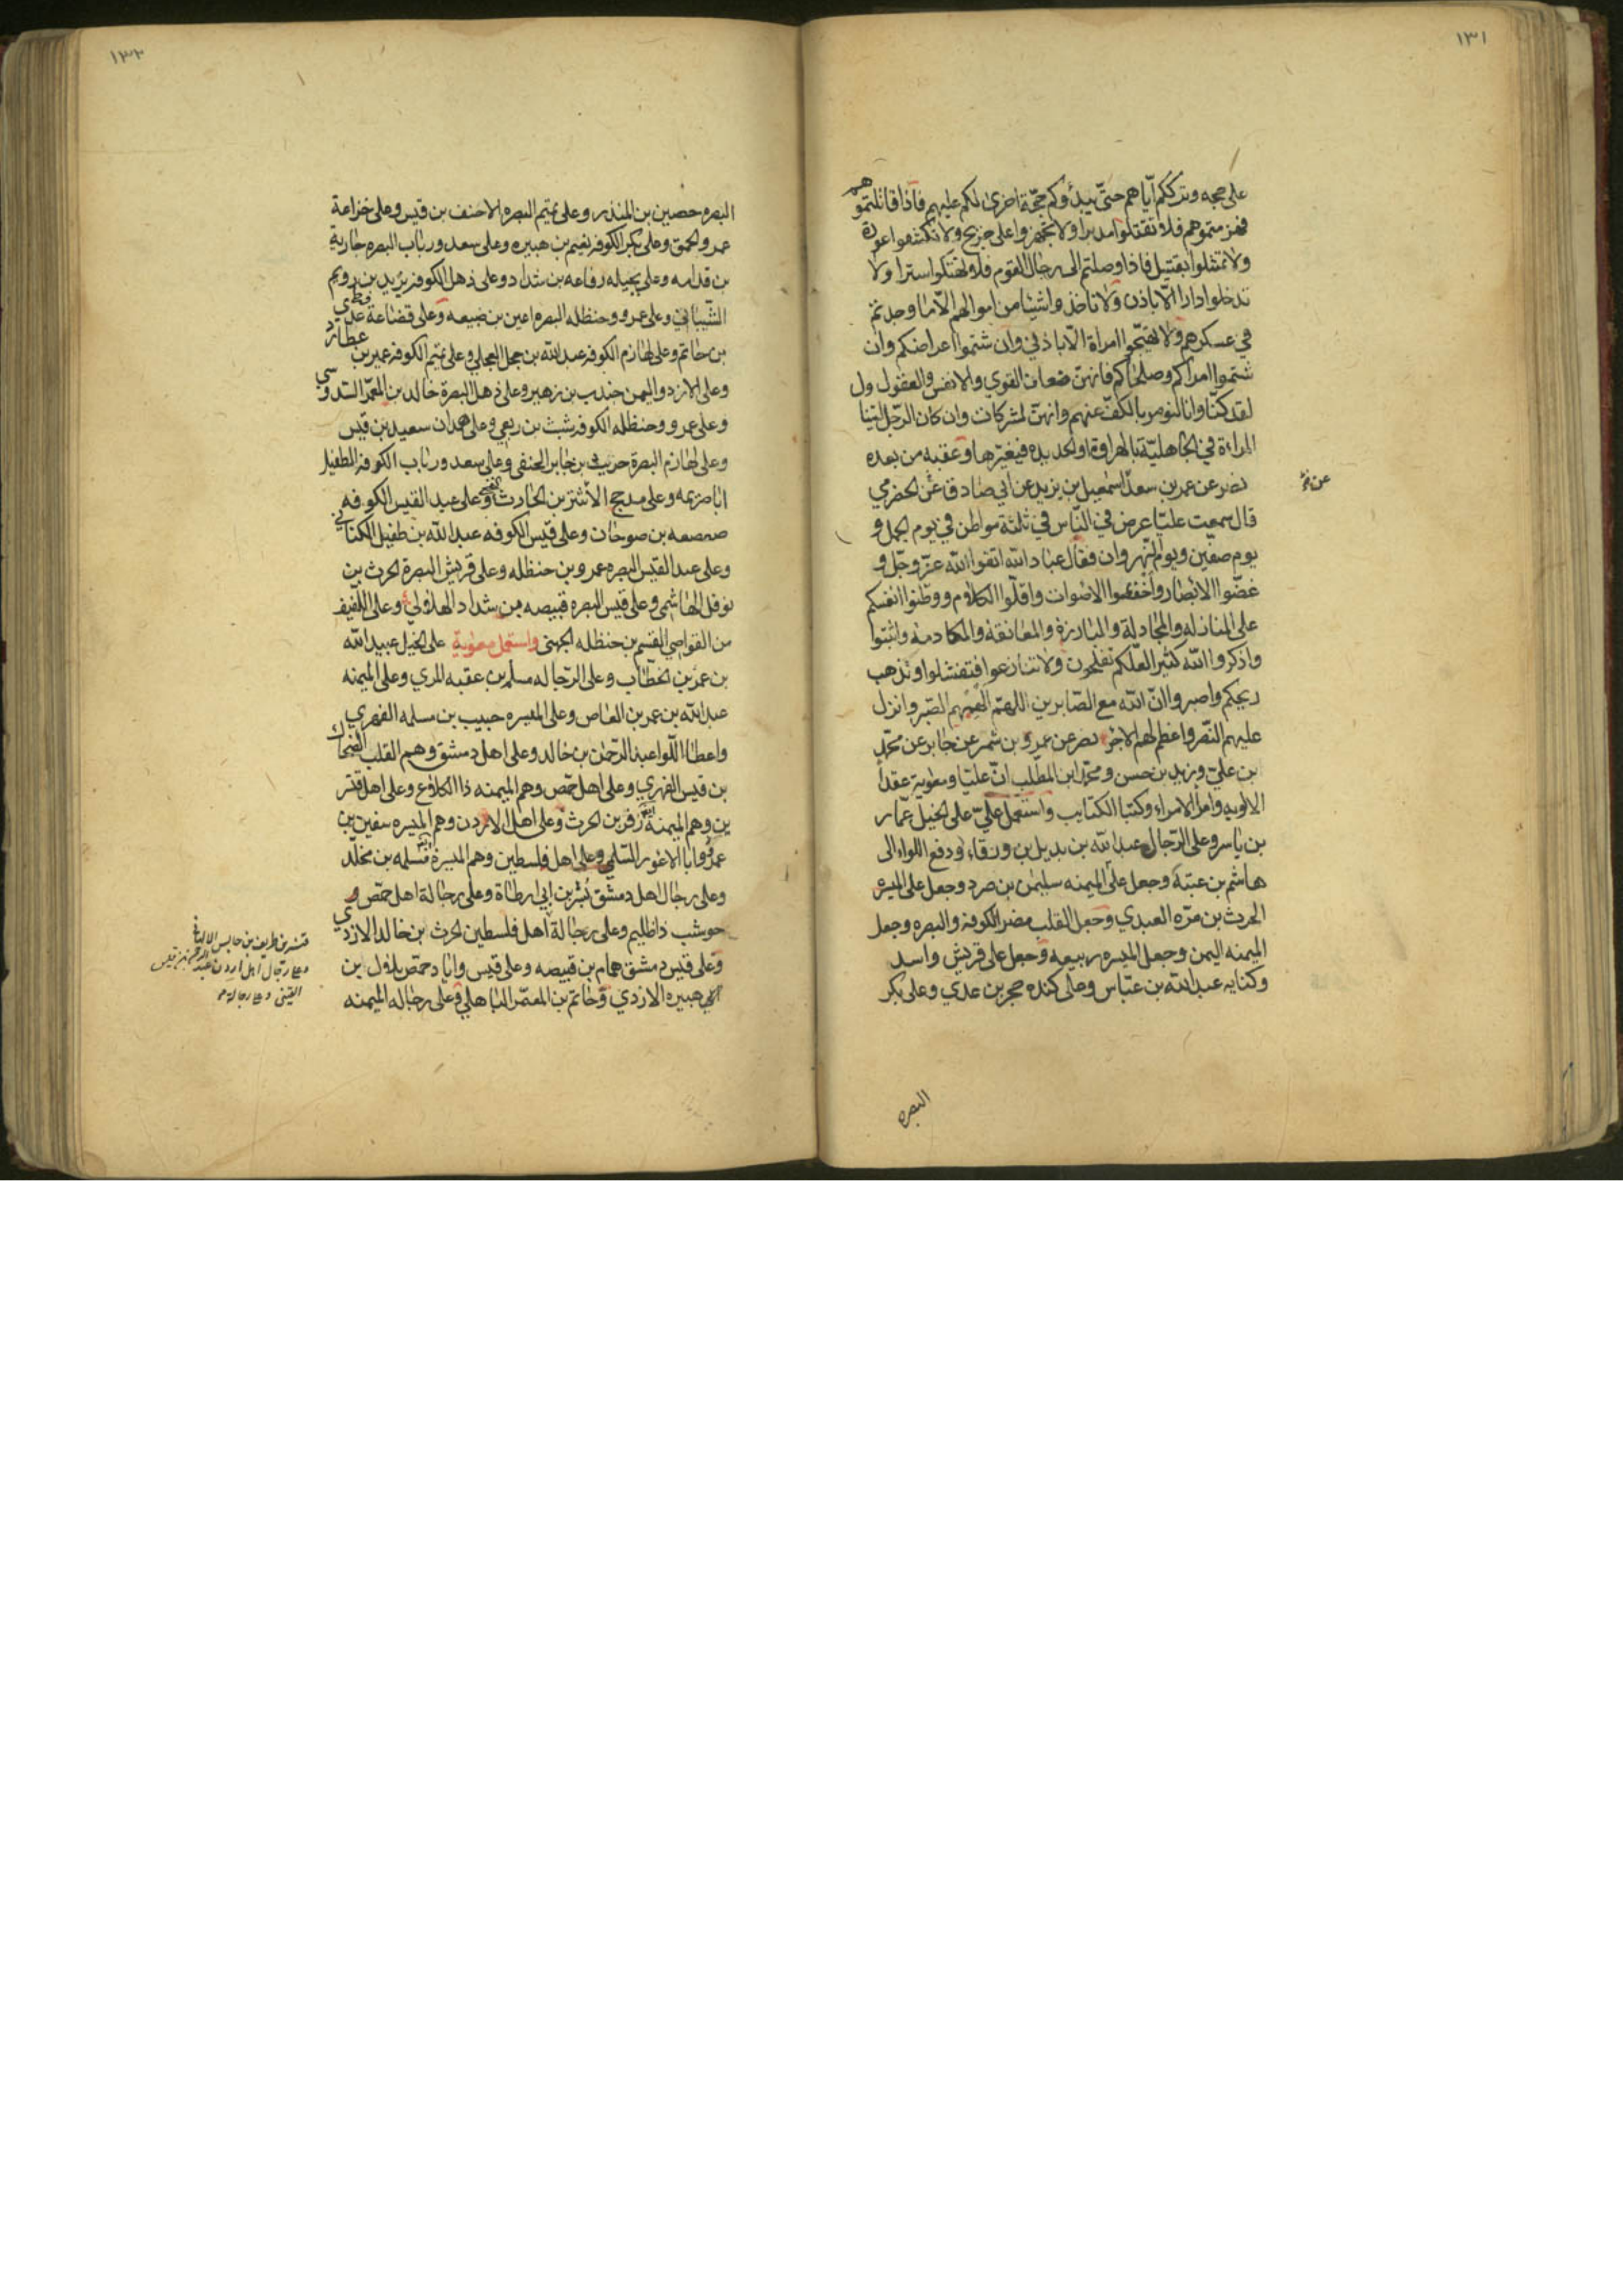 ١٣١
على حجه وترككم اياهم حتّى يبدؤكم حجّة اخرى لكم عليهم فاذا قاتلتموهم
فهزمتموهم فلا تقتلوا مدبرا ولا تجهزوا على جريح ولا تكشفوا عورة
ولا تمثلوا بقتيل فاذا وصلتم الى رحال القوم فلا تهتكوا سترا ولا
تدخلوا دارا الّا باذن ولا تاخذوا شيئا من اموالهم الّا ما وجدتم
في عسكرهم ولا تهيّجوا امراة الّا باذني وان شتموا اعراضكم وان
شتموا امراكم وصلحاكم فانهنّ ضعاف القوي والانفس والعقول ول
لقد كنّا وانا لنومر بالكفّ عنهم وانهنّ لمشركات وان كان الرجل ليتنا
المراءة في الجاهليّة بالهراوة او الحديده فيعيّر بها وعقبه من بعده
نصر عن عمر بن سعد اسمعيل بن يزيد عن ابي صادق عن الحضرمي
عن
قال سمعت عليّا عرض في النّاس في ثلثة مواطن في يوم الجمل و
يوم صفّين ويوم النّهروان فقال عباد الله اتقوا الله عزّ وجلّ و
غضّوا الابصار واخفضوا الاصوات واقلّوا الكلام ووطّنوا انفسكم
على المنازله والمجادلة والمبارزة والمعانقة والمكادمة واثبتوا
واذكروا الله كثيرا لعلّكم تفلحون ولا تنازعوا فتفشلوا وتذهب
ريحكم واصبروا انّ الله مع الصّابرين اللهمّ الهمهم الصّبر وانزل
عليهم النّصر واعظم لهم الاجر نصر عن عمرو بن شمر عن جابر عن محمّد
بن علي وزيد بن حسن ومحمّد ابن المطلب انّ عليّا ومعوية عقدا
الالويه وامرا الامراء وكتبا الكتايب واستعمل عليّ على الخيل عمّار
بن ياسر وعلى الرّجال عبد الله بن بديل بن ورقاء ودفع اللواء الى
هاشم بن عتبة وجعل على الميمنه سليمن بن صرد وجعل على الميسره
الحرث بن مرّه العبدي وجعل القلب مضر الكوفه والبصره وجعل
الميمنه اليمن وجعل الميسره ربيعه وجعل على قريش واسد
وكنانه عبد الله بن عبّاس وعلى كنده حجر بن عدي وعلى بكر
البصره
١٣٢
البصره حصين بن المنذر وعلى تميم البصره الاحنف بن قيس وعلى خزاعة
عمرو الحمق وعلى بكر الكوفه نعيم بن هبيره وعلى سعد ورباب البصره جارية
بن قدامه وعلى بجيله رفاعه بن شداد وعلى ذهل الكوفه يزيد بن رويم
الشّيباني وعلى عمرو وحنظله البصره اعين بن ضبيعه وعلى قضاعة عدي
بن حاتم وعلى لهازم الكوفه عبد الله بن حجل العجلي وعلى تميم الكوفه عمير بن عطارد
وعلى الازد واليمن جندب بن زهير وعلى ذهل البصرة خالد بن المعمّر السّدوسي
وعلى عمرو وحنظله الكوفه شبث بن ربعي وعلى همدان سعيد بن قيس
وعلى لهازم البصرة حريث بن جابر الحنفي وعلى سعد ورباب الكوفه الطفيل
ابا صريمه وعلى مذحج الاشتر بن الحارث النخعي وعلى عبد القيس الكوفه
صعصعه بن صوحان وعلى قيس الكوفه عبد الله بن طفيل الكناني
وعلى عبد القيس البصره عمرو بن حنظله وعلى قريش البصرة الحرث بن
نوفل الهاشمي وعلى قيس البصره قبيصه بن شداد الهلالي وعلى اللّفيف
من القواصي القسم بن حنظله الجهني واستعمل معوية على الخيل عبيد الله
بن عمر بن الخطّاب وعلى الرّجاله مسلم بن عقبه المري وعلى الميمنه
عبد الله بن عمر بن العاص وعلى الميسره حبيب بن مسلمه الفهري
واعطا اللّوا عبد الرّحمن بن خالد وعلى اهل دمشق وهم القلب الضحاك
بن قيس الفهري وعلى اهل حمص وهم الميمنه ذا الكلاع وعلى اهل قنسر
ين وهم الميمنه زفر بن الحرث وعلى اهل الاردن وهم الميسره سفين بن
عمرو ابا الاعور السّلمي وعلى اهل فلسطين وهم الميسرة مسلمه بن مخلّد
وعلى رجال اهل دمشق بُسر بن ابي ارطاة وعلى رجالة اهل حمص
حوشب ذا ظليم وعلى رجالة اهل فلسطين الحرث بن خالد الازدي
وعلى قيس دمشق همام بن قبيصه وعلى قيس واياد حمص بلال ابن
ابي هبيره الازدي وحاتم بن المعتمر الباهلي وعلى رجاله الميمنه
قنسرين طريف بن حابس الالهاني
وعلى رجال اهل اردن عبد الرحمن بن قيس
القيني وعلى رجالة